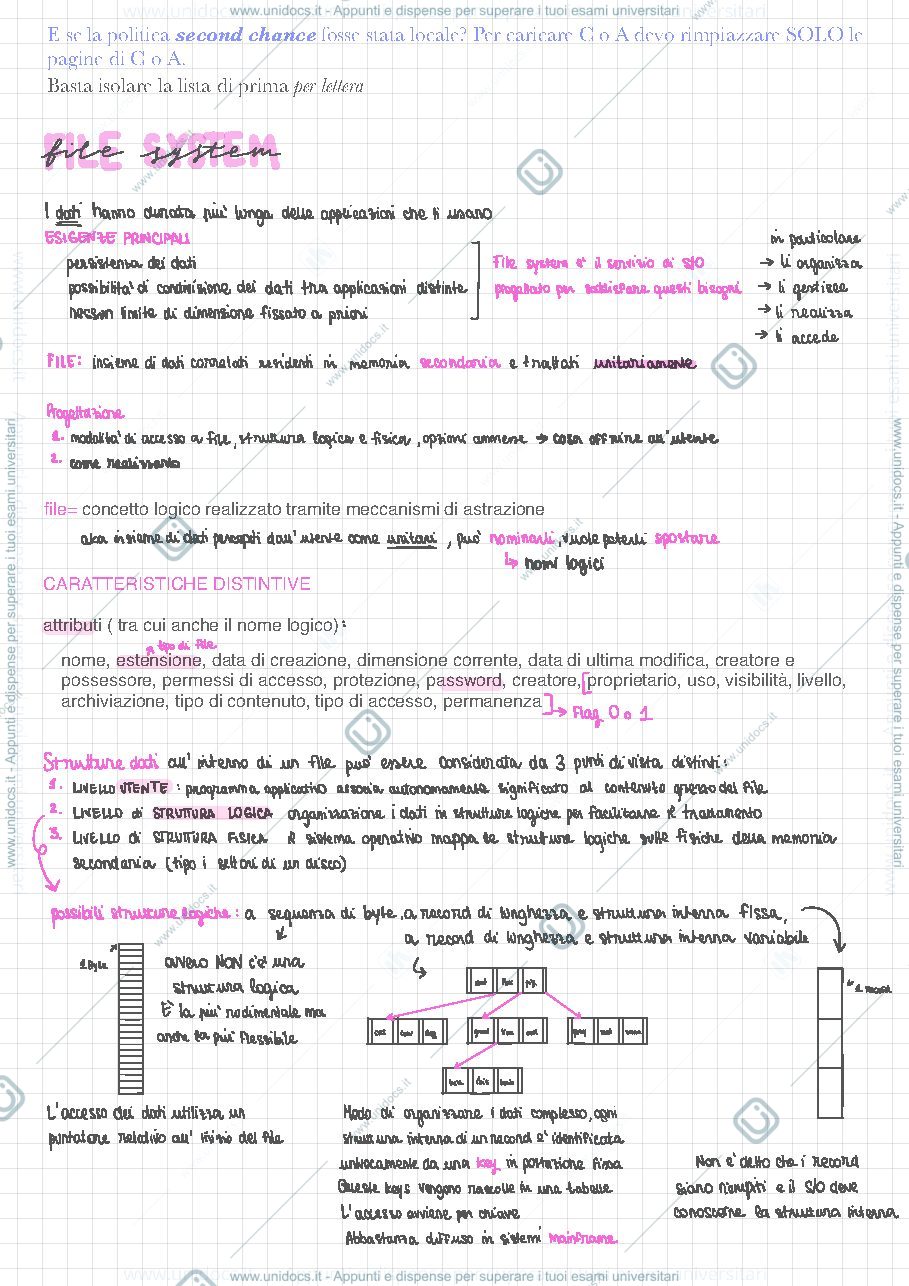 www.unidocs.it - Appunti e dispense per superare i tuoi esami universitari
E se la politica second chance fosse stata locale? Per caricare C o A devo rimpiazzare SOLO le
pagine di C o A.
Basta isolare la lista di prima per lettera
FILE SYSTEM
file system
I dati hanno durata piu' lunga delle applicazioni che li usano
ESIGENZE PRINCIPALI
persistenza dei dati
possibilita' di condivisione dei dati tra applicazioni distinte
nessun limite di dimensione fissato a priori
File system e' il servizio di S/O
progettato per soddisfare questi bisogni
in particolare
→ li organizza
→ li gestisce
→ li realizza
→ li accede
FILE: insieme di dati correlati residenti in memoria secondaria e trattati unitariamente
Progettazione
1. modalita' di accesso a file, struttura logica e fisica, opzioni ammesse → cosa offrire all'utente
2. come realizzarlo
file= concetto logico realizzato tramite meccanismi di astrazione
aka insieme di dati percepiti dall'utente come unitari, puo' nominarli, vuole poterli spostare
↳ nomi logici
CARATTERISTICHE DISTINTIVE
attributi ( tra cui anche il nome logico):
tipo di file
nome, estensione, data di creazione, dimensione corrente, data di ultima modifica, creatore e
possessore, permessi di accesso, protezione, password, creatore, proprietario, uso, visibilità, livello,
archiviazione, tipo di contenuto, tipo di accesso, permanenza
→ Flag 0 o 1
Strutture dati all'interno di un file puo' essere considerata da 3 punti di vista distinti:
1. LIVELLO UTENTE: programma applicativo associa autonomamente significato al contenuto grezzo del file
2. LIVELLO di STRUTTURA LOGICA organizzazione i dati in strutture logiche per facilitarne il trattamento
3. LIVELLO di STRUTTURA FISICA il sistema operativo mappa le strutture logiche sulle fisiche della memoria
secondaria (tipo i settori di un disco)
possibili strutture logiche: a sequenza di byte, a record di lunghezza e struttura interna fissa,
a record di lunghezza e struttura interna variabile
1 Byte
ovvero NON c'e' una
struttura logica
E' la piu' rudimentale ma
anche la piu' flessibile
1 record
L'accesso dei dati utilizza un
puntatore relativo all'inizio del file
Modo di organizzare i dati complesso, ogni
struttura interna di un record e' identificata
univocamente da una key in postazione fissa
Queste keys vengono raccolte in una tabella
L'accesso avviene per chiave
Abbastanza diffuso in sistemi mainframe
Non e' detto che i record
siano riempiti e il S/O deve
conoscere la struttura interna
www.unidocs.it - Appunti e dispense per superare i tuoi esami universitari